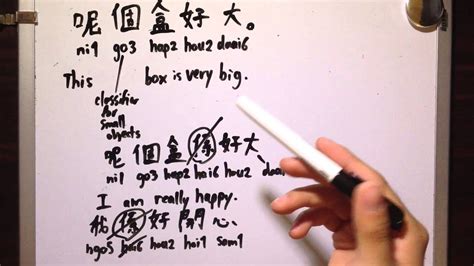 呢個盒好大。
ni1 go3 hap2 hou2 daai6
This box is very big.
classifier
for
small
objects
呢個盒係好大、
ni1 go3 hap2 hai6 hou2
I am really happy.
我係好開心、
ngo5 hai6 hou2 hoi1 sam1